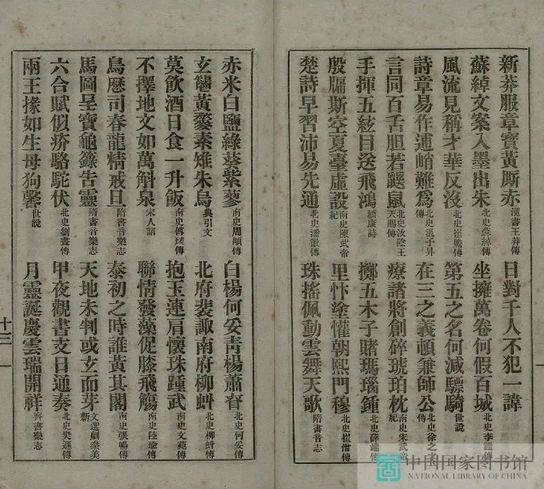 新莽服章寶黃廝赤 漢書王莽傳 日對千人不犯一諱
蘇綽文案入墨出朱 北史蘇綽傳 坐擁萬卷何假百城 北史李謐傳
風流見稱才華反沒 北史傳 第五之名何減驃騎 世說
詩章易作逋峭難為 北史溫子昇傳 在三之義頓兼師公 北史徐之傳
言同百舌膽若鼷鼠 北史汝陰王天賜傳 療諸將創碎琥珀枕 南史宋武帝紀
手揮五絃目送飛鴻 嵇康詩 擲五木子賭瑪瑙鍾 北史薛端傳
殷牖斯空夏臺虛設 南史陳武帝紀 里忭塗懽朝熙門穆 北史崔傳
楚詩早習沛易先通 北史潘徽傳 珠搖佩動雲舞天歌 隋書音志
赤米白鹽綠葵紫蓼 南史周顒傳 白楊何妥青楊蕭眘 北史何妥傳
玄黃素雉朱烏 典引文 北府裝諏南府柳虯 北史柳虯傳
莫飲酒日食一升飯 南史傅琰傳 抱玉連肩懷珠踵武 南史文苑傳
不擇地文如萬斛泉 宋人語 聯情發藻促膝飛觴 南史陸瑜傳
鳥曆司春龍精戒旦 隋書音樂志 泰初之時誰黃其閣 南史張暢傳
馬圖呈寶龜籙告靈 隋書音樂志 天地未判或玄而芽 文選劇秦美新
六合賦似疥駱駝伏 北史劉晝傳 甲夜觀書支日通奏 北史樊遜傳
兩王掾如生母狗馨 世說 月靈誕慶雲瑞開祥 齊書樂志
十三
中国国家图书馆
NATIONAL LIBRARY OF CHINA